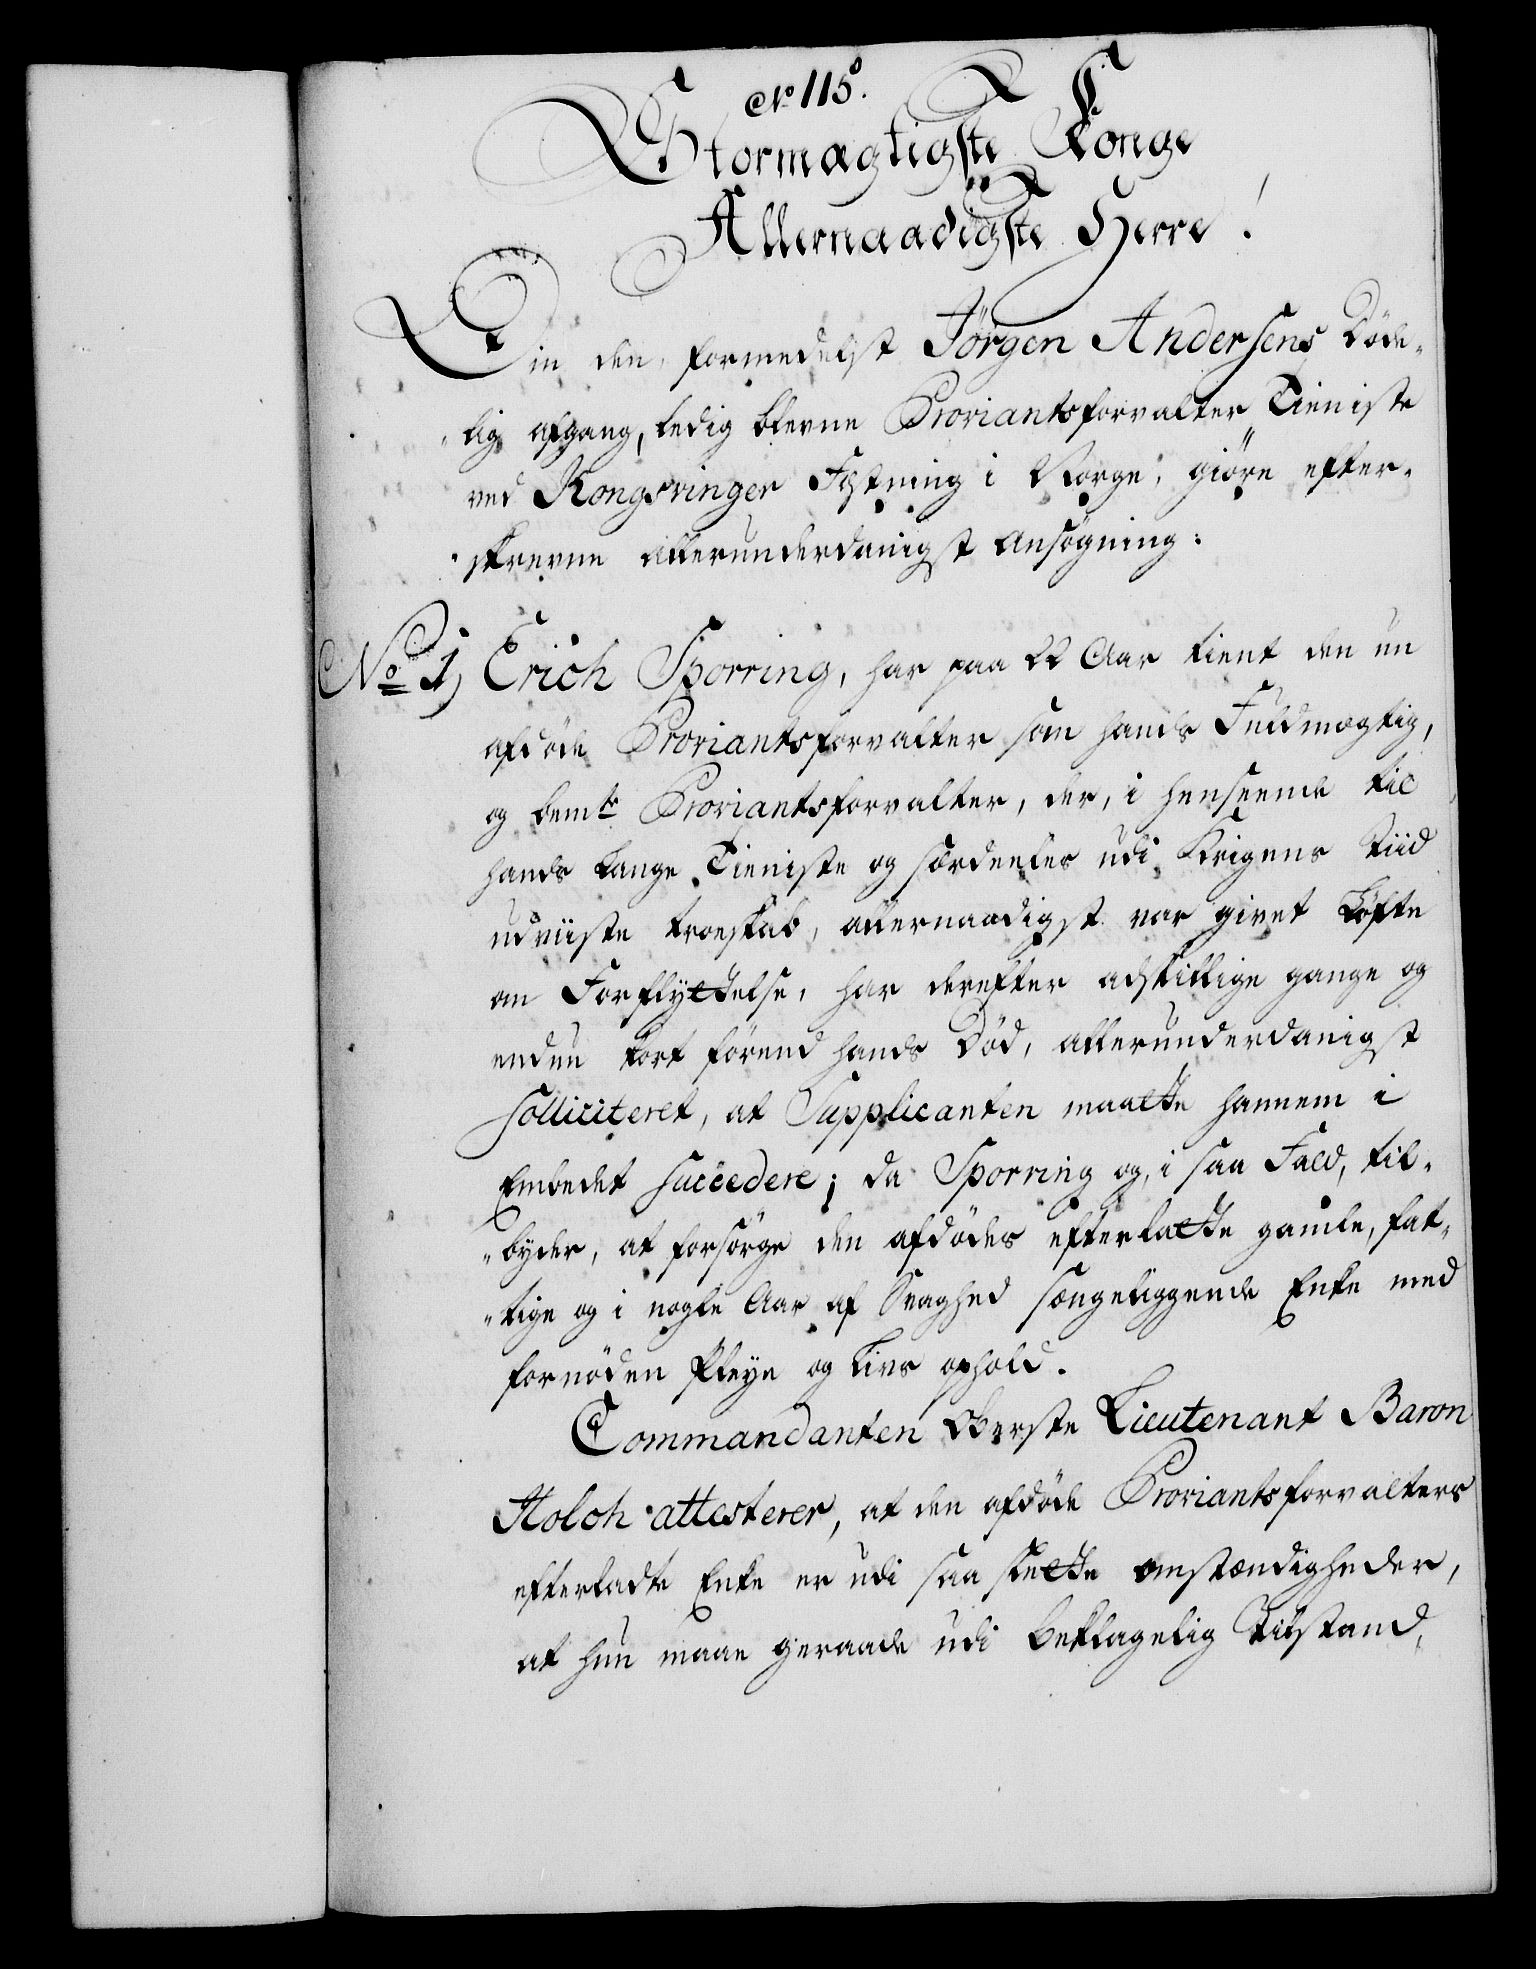 No 115.
Stormægtigste Konge
Allernaadigste Herre!
Om den, formedelst Jörgen Andersens Döde-
lig afgang, ledig blevne Proviantsforvalter Tieniste
ved Kongsvinger Festning i Norge, giöre efter-
skrevne allerunderdanigst Ansögning:
No 1, Erich Sporring, har paa 22 Aar tient den nu
afdöde Proviantsforvalter som hands Fuldmægtig,
og bemte Proviantsforvalter, der, i henseende til
hands lange Tieniste og særdeeles udi Krigens Tiid
udviiste troeskab, allernaadigst var givet Löfte
om Forflyttelse, har derefter adskillige gange og
endnu kort förend hands Död, allerunderdanigst
solliciteret, at Supplicanten maatte hannem i
Embedet succedere; da Sporring og, i saa Fald, til-
byder, at forsörge den afdödes efterlatte gamle, fat-
tige og i nogle Aar af Svaghed sængeliggende Enke med
fornöden Pleye og Livs ophold.
Commandanten Oberste Lieutenant Baron
Holch attesterer, at den afdöde Proviantsforvalters
efterladte Enke er udi saa slette omstændigheder,
at hun maae geraade udi beklagelig Tilstand,